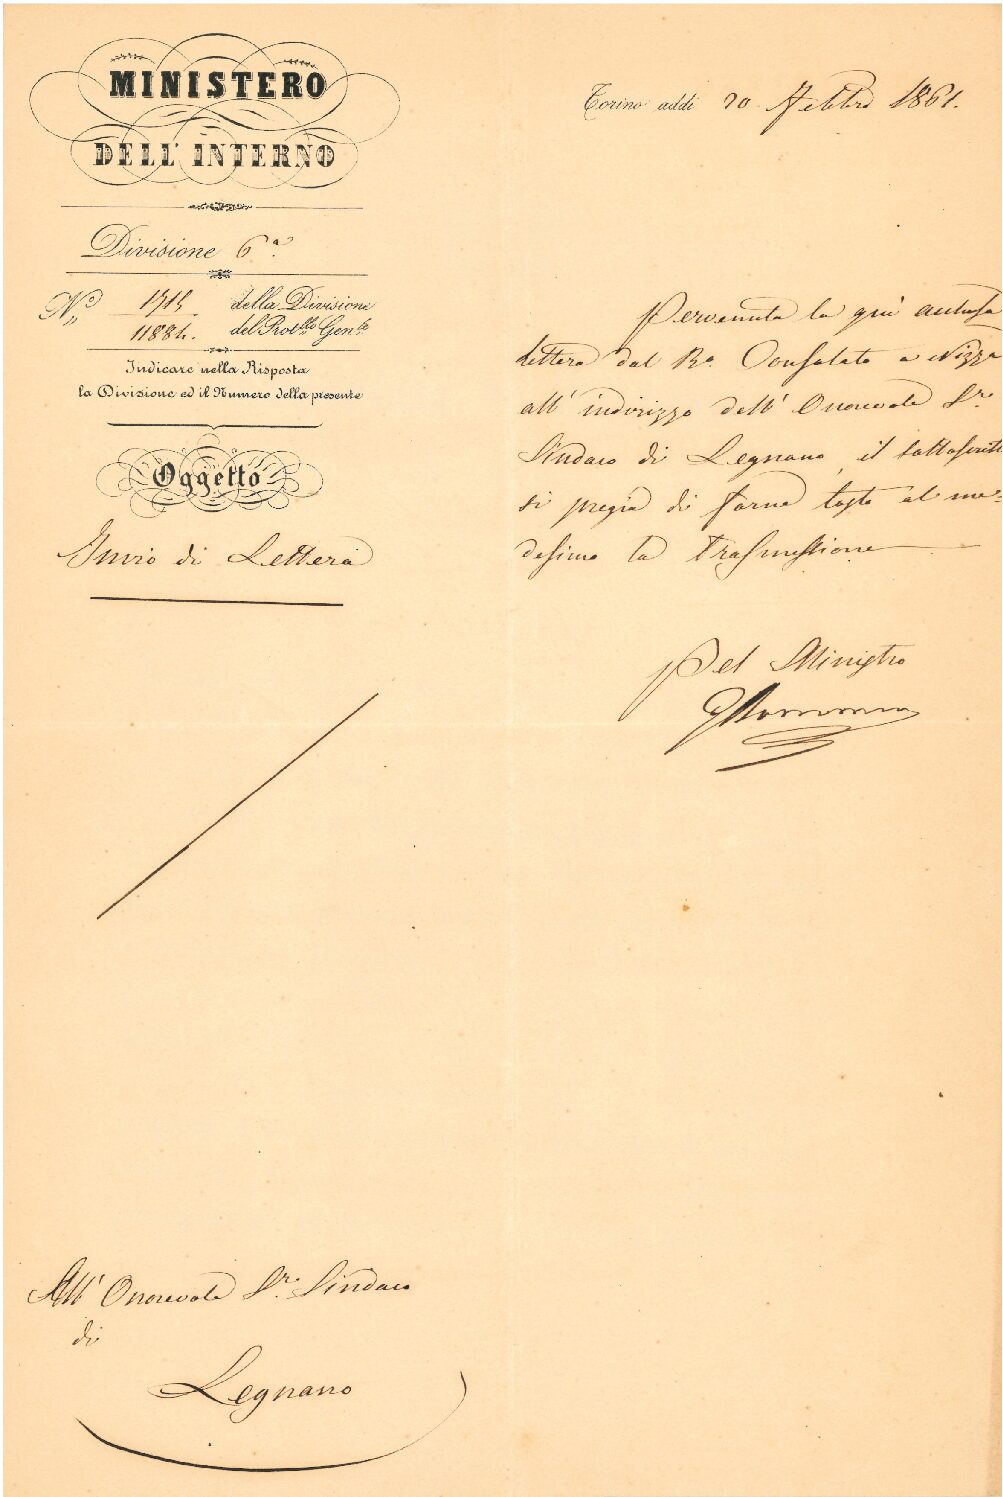 MINISTERO
DELL' INTERNO
Divisione 6ª.
N° 1715 della Divisione
11884. del Protllo Genle
Indicare nella Risposta
la Divisione ed il Numero della presente
Oggetto
Invio di Lettera
All' Onorevole Sr. Sindaco
di
Legnano
Torino addi 20 Febbro 1861.
Pervenuta la qui acclusa
lettera dal Ro. Consolato a Nizza
all' indirizzo dell' Onorevole Sr.
Sindaco di Legnano, il sottoscritto
si pregia di farne tosto al me=
desimo la trasmissione
Pel Ministro